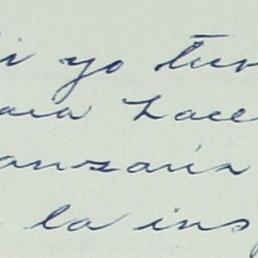 i yo tuv
ara hace
anzaria
la ins